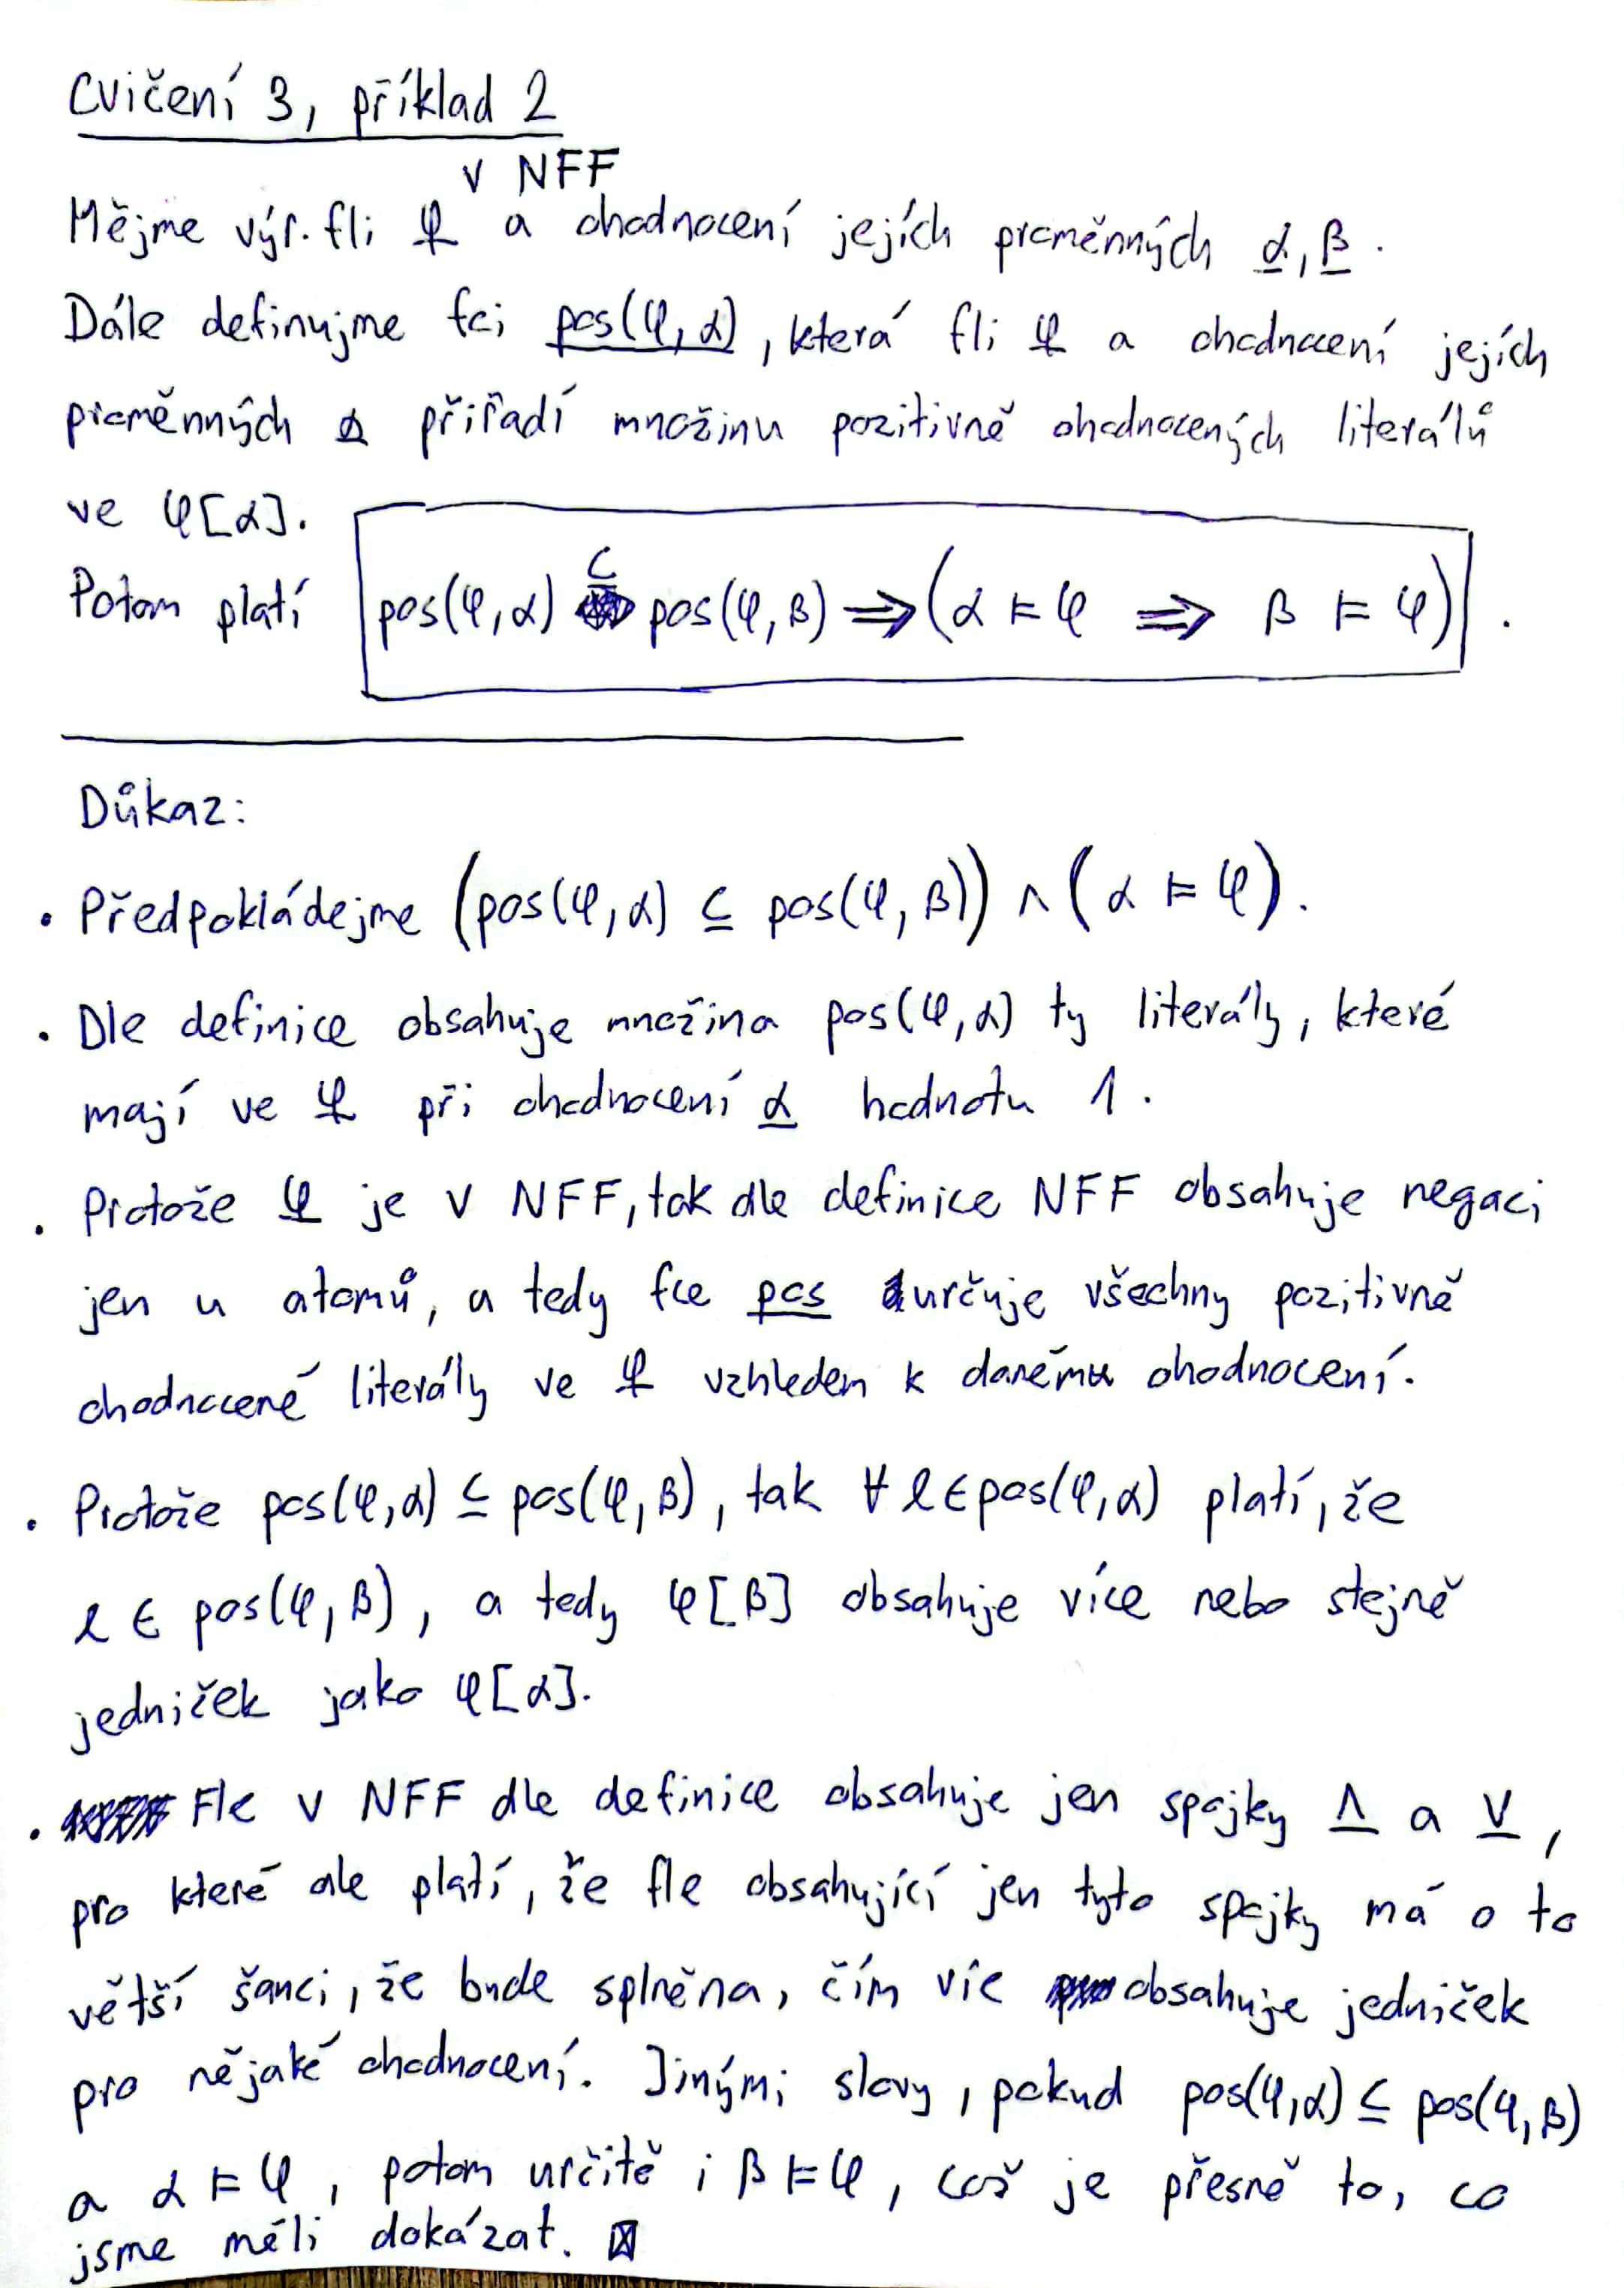 Cvičení 3, příklad 2
v NFF
Mějme výr. fli φ a ohodnocení jejích proměnných α, β.
Dále definujme fci pos(φ, α), která fli φ a ohodnocení jejích
proměnných α přiřadí množinu pozitivně ohodnocených literálů
ve φ[α].
Potom platí pos(φ, α) ⊆ pos(φ, β) ⇒ (α ⊨ φ ⇒ β ⊨ φ).
Důkaz:
• Předpokládejme (pos(φ, α) ⊆ pos(φ, β)) ∧ (α ⊨ φ).
• Dle definice obsahuje množina pos(φ, α) ty literály, které
mají ve φ při ohodnocení α hodnotu 1.
• Protože φ je v NFF, tak dle definice NFF obsahuje negaci
jen u atomů, a tedy fce pos určuje všechny pozitivně
ohodnocené literály ve φ vzhledem k danému ohodnocení.
• Protože pos(φ, α) ⊆ pos(φ, β), tak ∀ l ∈ pos(φ, α) platí, že
l ∈ pos(φ, β), a tedy φ[β] obsahuje více nebo stejně
jedniček jako φ[α].
• Fle v NFF dle definice obsahuje jen spojky ∧ a ∨,
pro které ale platí, že fle obsahující jen tyto spojky má o to
větší šanci, že bude splněna, čím víc obsahuje jedniček
pro nějaké ohodnocení. Jinými slovy, pokud pos(φ, α) ⊆ pos(φ, β)
a α ⊨ φ, potom určitě i β ⊨ φ, což je přesně to, co
jsme měli dokázat.